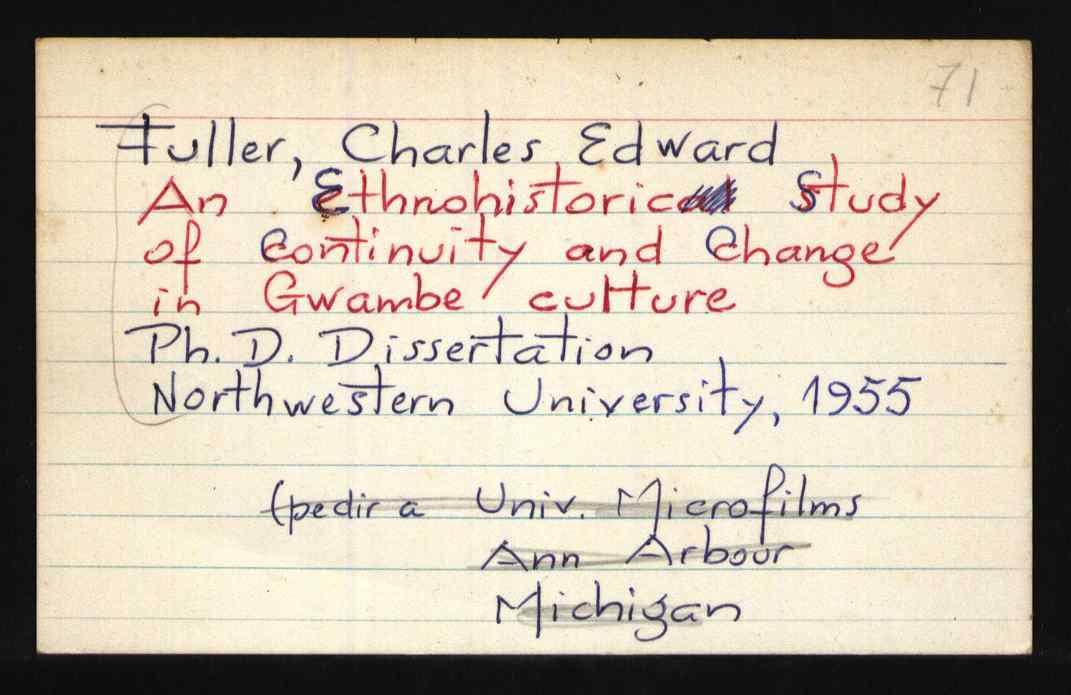 71
Fuller, Charles Edward
An Ethnohistoric Study
of Continuity and Change
in Gwambe culture
Ph. D. Dissertation
Northwestern University, 1955
(pedir a Univ. Microfilms
Ann Arbour
Michigan